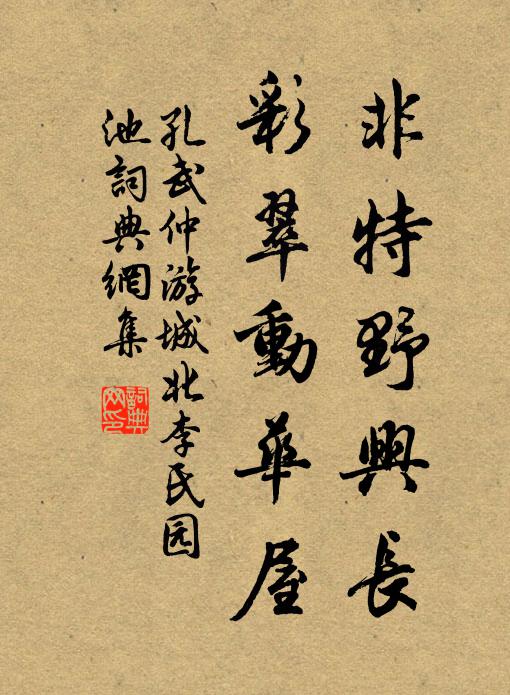 非特野興長
彩翠動華屋
孔武仲游城北李民园
池詞典網集
詞典
网印